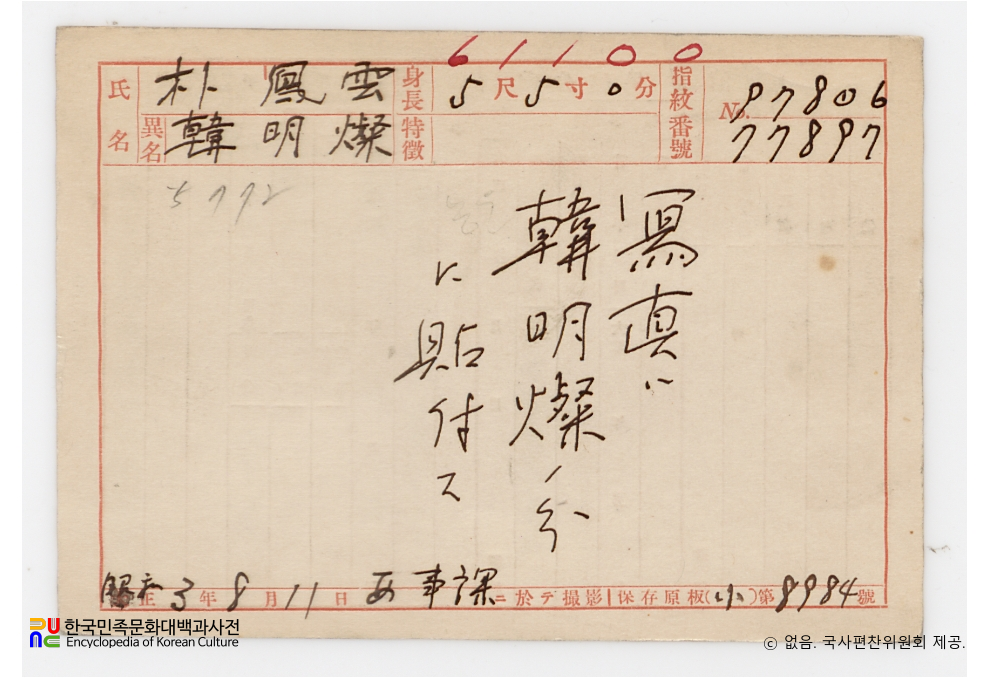 61100
氏名 朴鳳雲 身長 5尺5寸0分 指紋番號 No. 97806
異名 韓明燦 特徵 77897
5792
寫眞ハ
韓明燦ノ分
ニ貼付ス
昭和3年8月11日 事課ニ於テ撮影 保存原板(小)第8984號
한국민족문화대백과사전
Encyclopedia of Korean Culture
ⓒ 없음. 국사편찬위원회 제공.